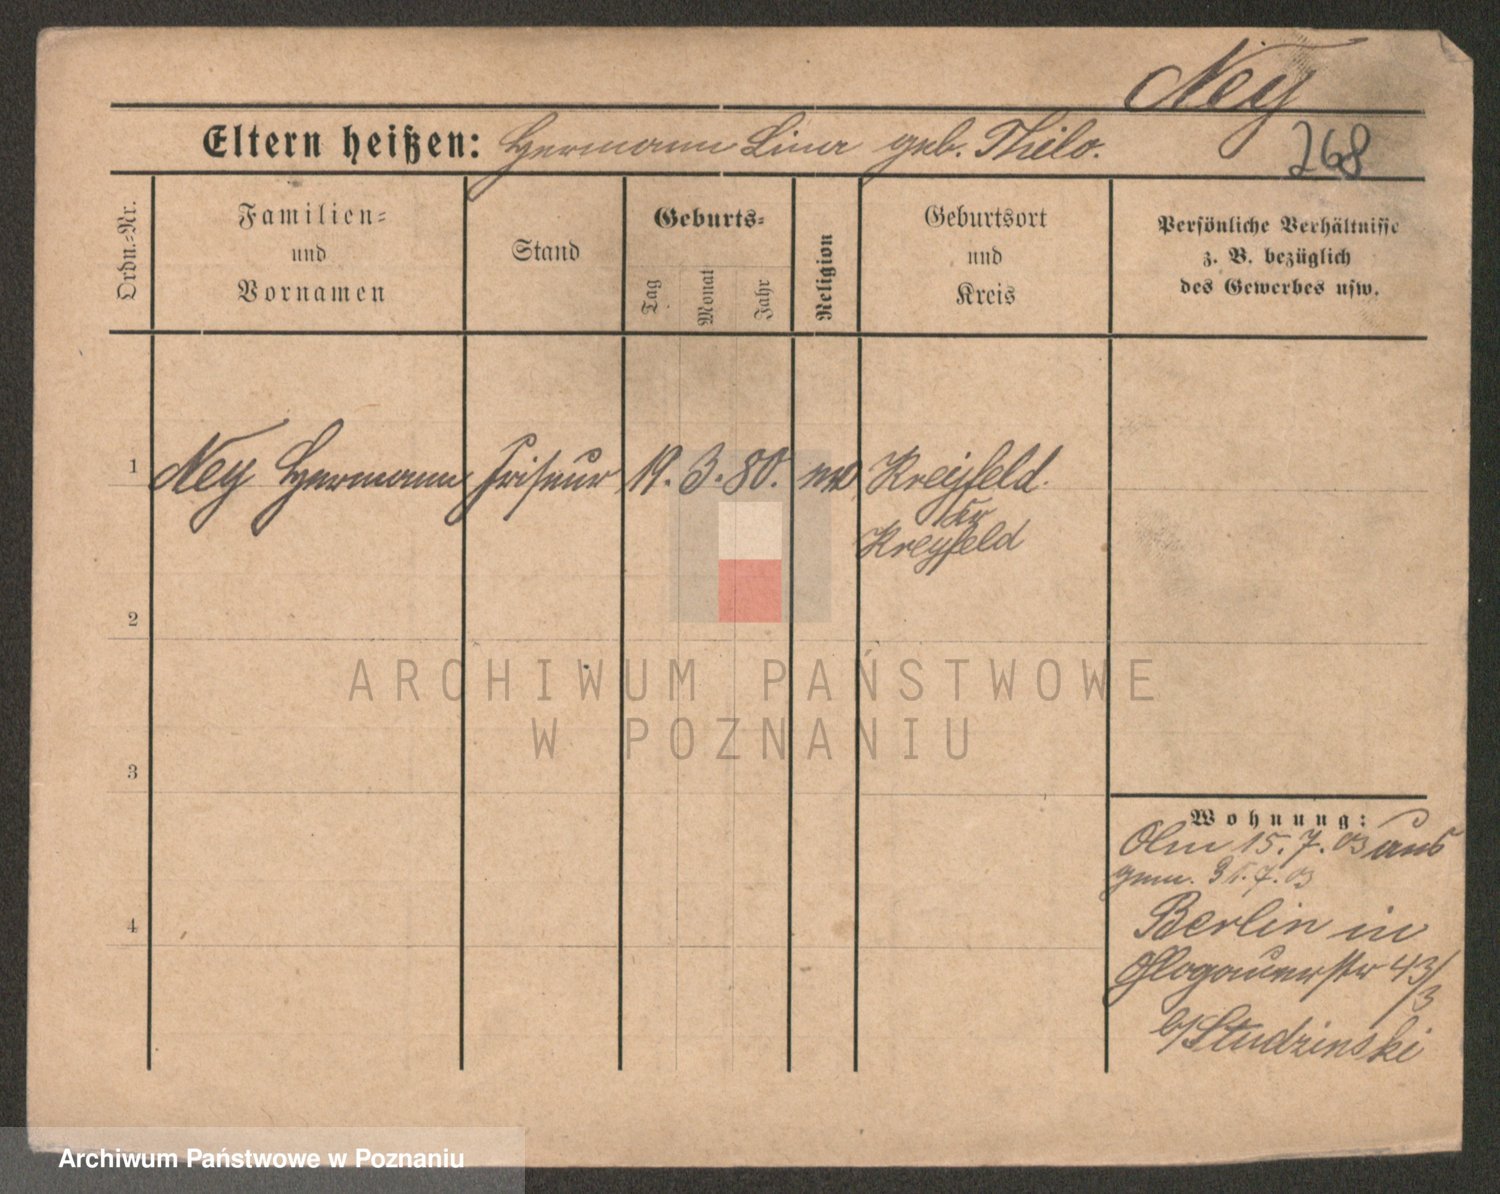 Ney
Eltern heißen: Hermann Lina geb. Thilo.
268
Ordn.=Nr.
Familien=
und
Vornamen
Stand
Geburts=
Tag
Monat
Jahr
Religion
Geburtsort
und
Kreis
Persönliche Verhältnisse
z. B. bezüglich
des Gewerbes usw.
1 Ney Hermann Friseur 19. 3. 80. Kreyfeld.
Kr
Kreyfeld
2
3
4
Wohnung:
15. 7. 03 aus
gem. 31. 7. 03
Berlin in
Glogauerstr 43/3
b/Studzinski
ARCHIWUM PAŃSTWOWE
W POZNANIU
Archiwum Państwowe w Poznaniu